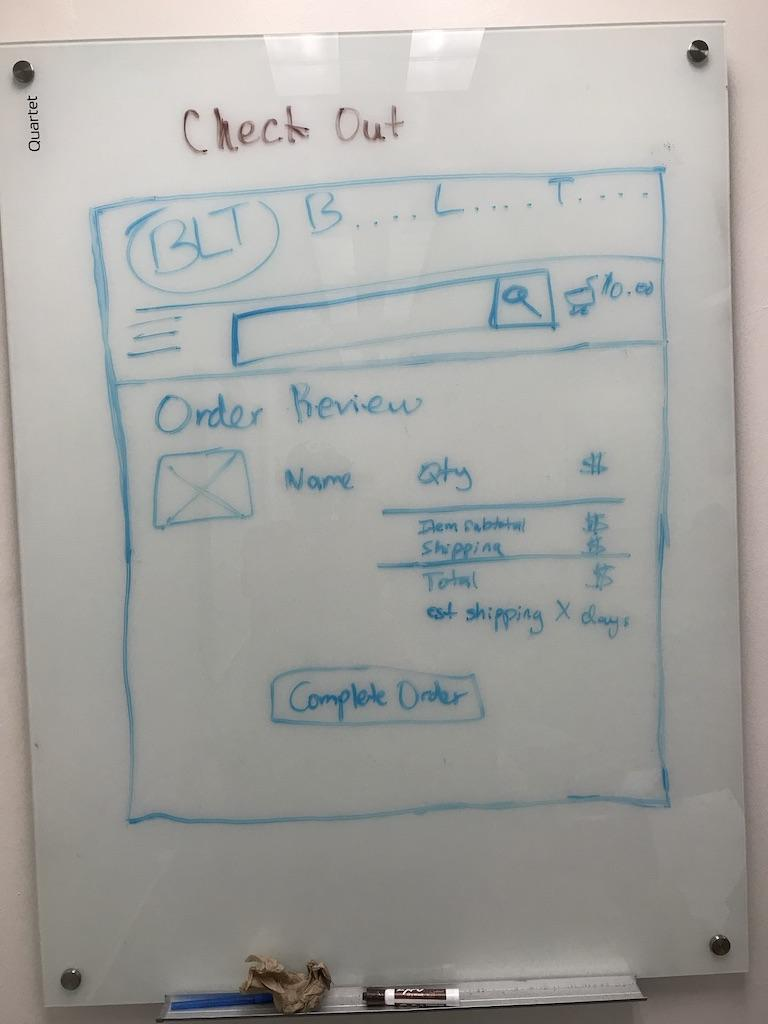 Quartet
Check Out
BLT B.... L.... T....
$10.00
Order Review
Name Qty $
Item subtotal $
Shipping $
Total $
est shipping X days
Complete Order